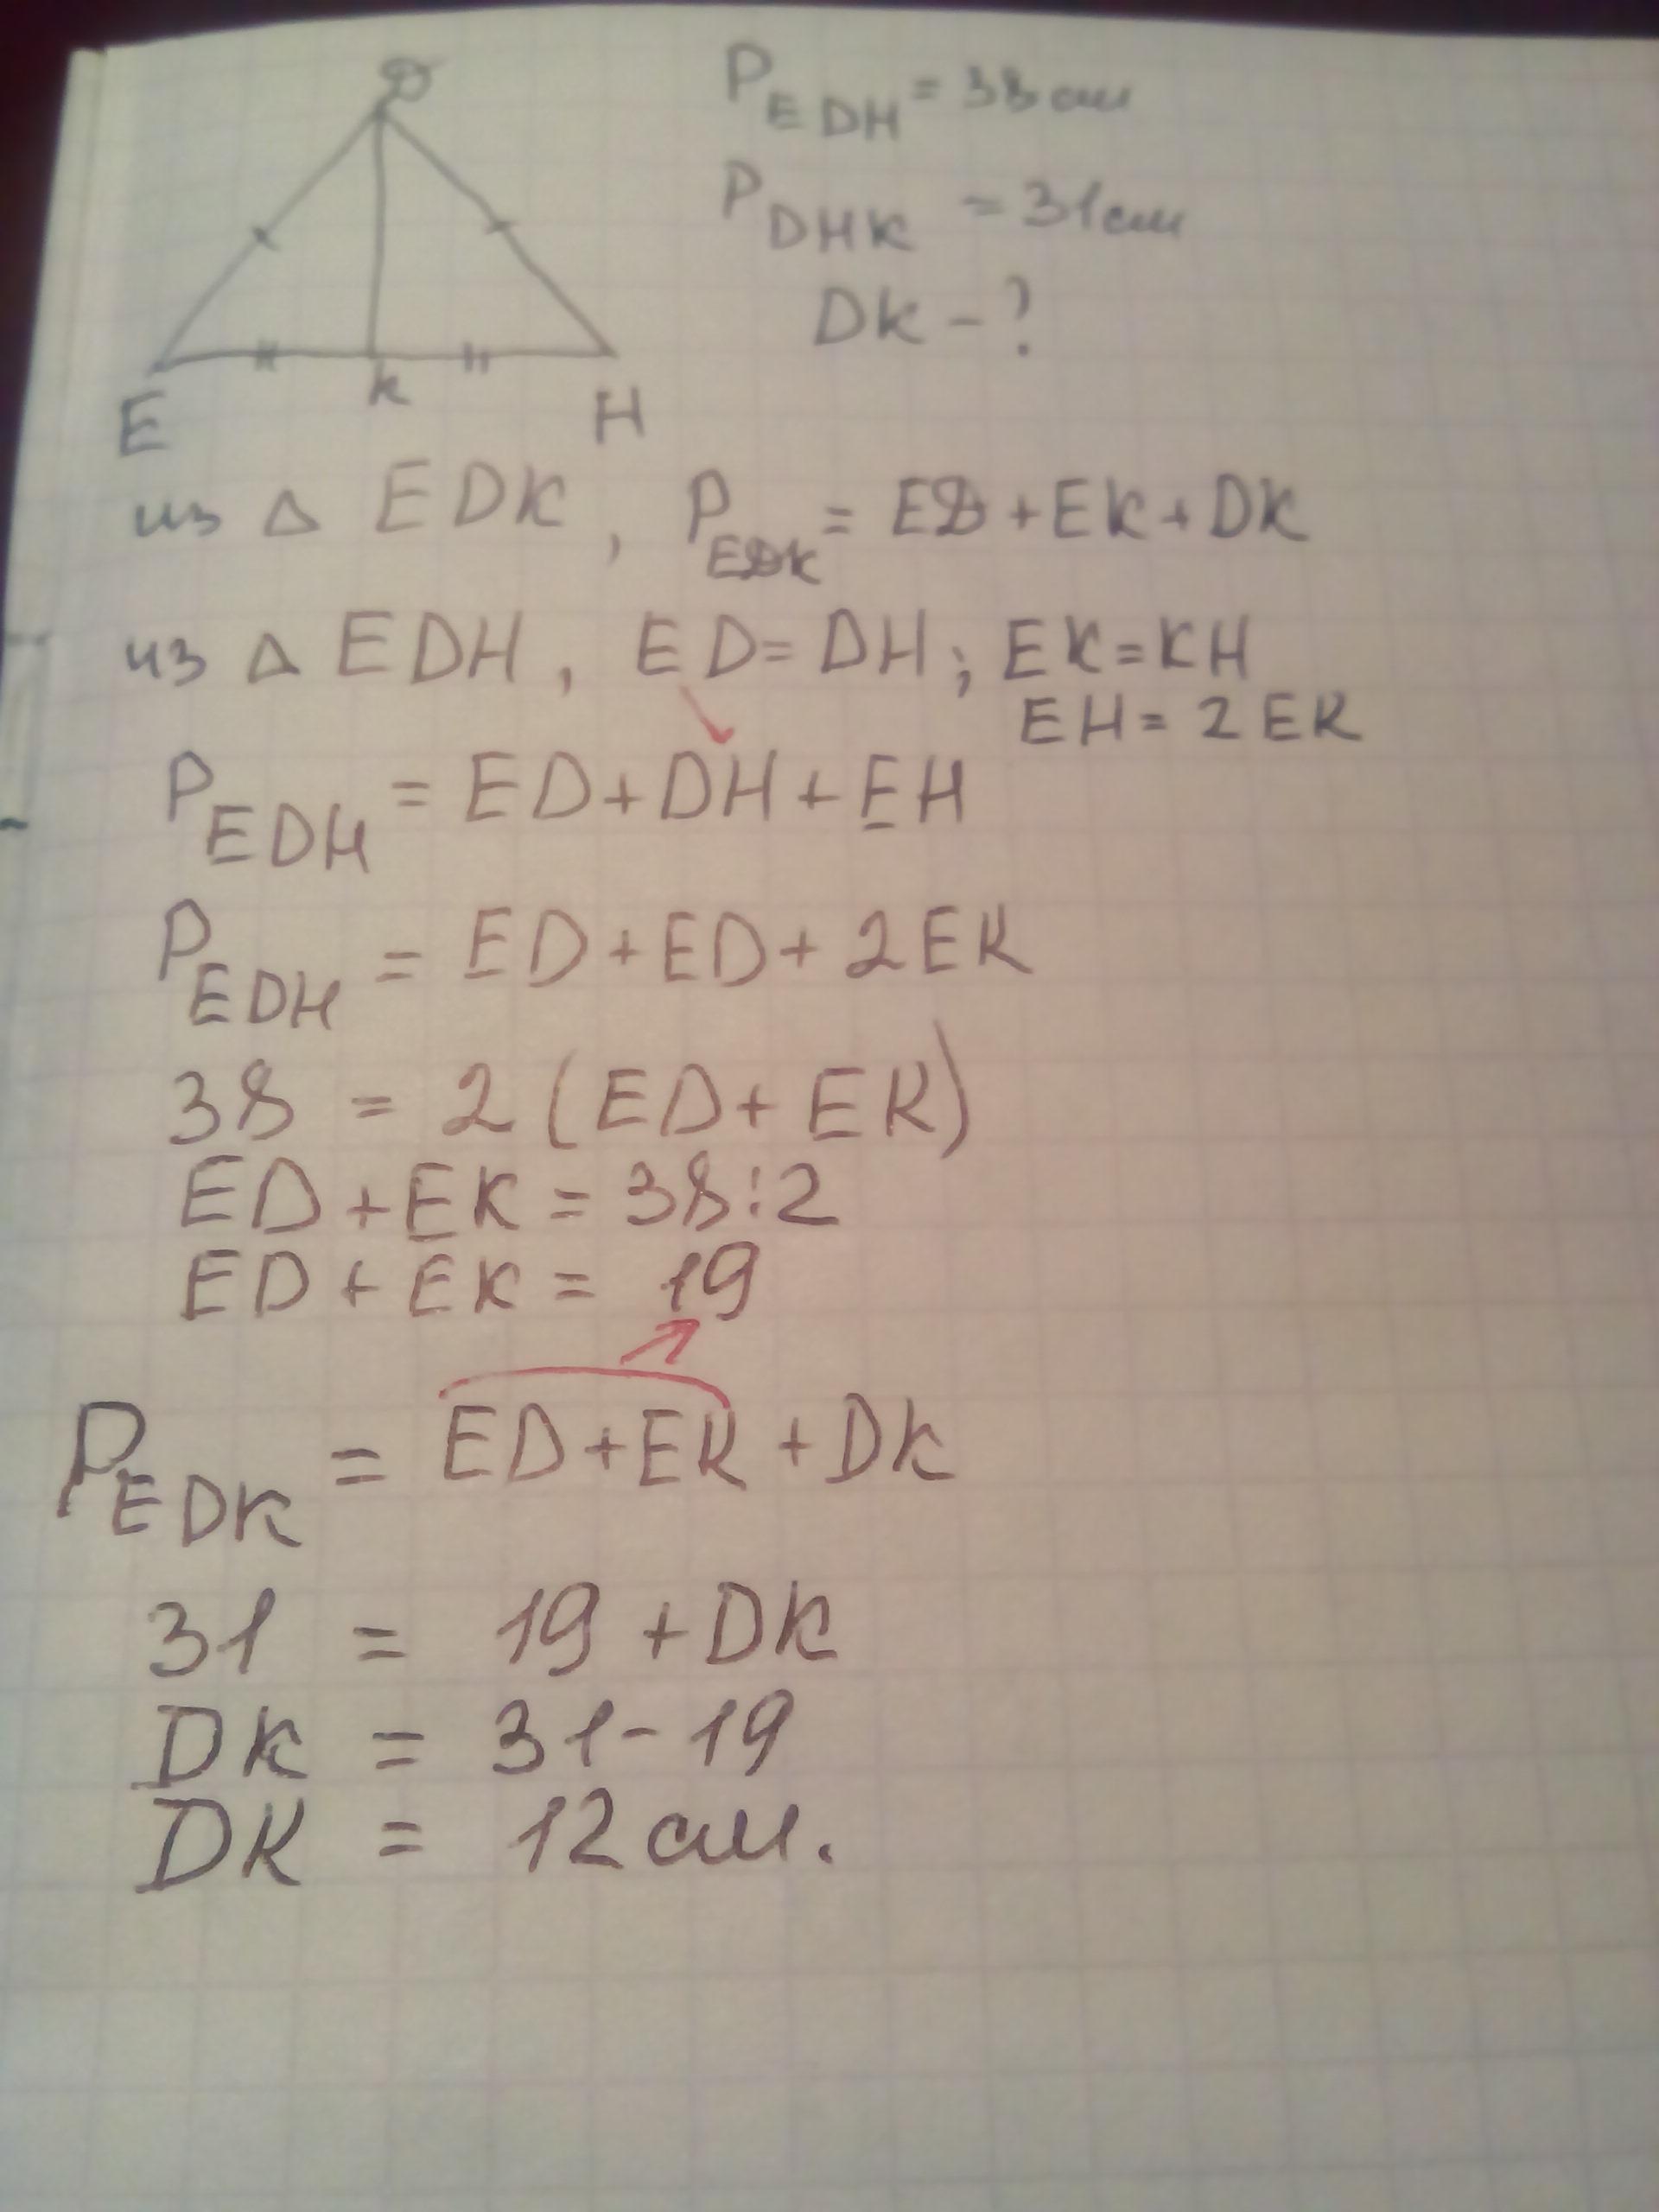 D
E
K
H
P EDH = 38 см
P DHK = 31 см
DK - ?
из △ EDK, P EDK = ED + EK + DK
из △ EDH, ED = DH; EK = KH
EH = 2 EK
P EDH = ED + DH + EH
P EDH = ED + ED + 2 EK
38 = 2 (ED + EK)
ED + EK = 38 : 2
ED + EK = 19
P EDK = ED + EK + DK
31 = 19 + DK
DK = 31 - 19
DK = 12 см.